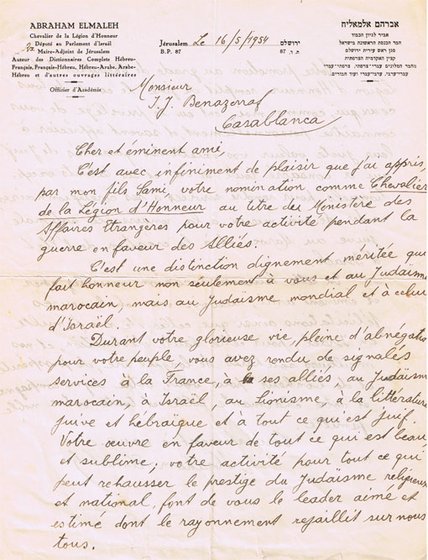 ABRAHAM ELMALEH
Chevalier de la Légion d'Honneur
Député au Parlement d'Israël
Maire-Adjoint de Jérusalem
Auteur des Dictionnaires Complets Hébreu-
Français, Français-Hébreu, Hébreu-Arabe, Arabe-
Hébreu et d'autres ouvrages littéraires
Officier d'Académie
Jérusalem Le 16/5/1954 ירושלים
B.P. 87 ת.ד. 87
אברהם אלמאליח
אביר לגיון הכבוד
חבר הכנסת הראשונה בישראל
סגן ראש עירית ירושלים
קצין האקדמיה הצרפתית
Monsieur
I. J. Benazeraf
Casablanca
Cher et éminent ami,
C'est avec infiniment de plaisir que j'ai appris,
par mon fils Sami, votre nomination comme Chevalier
de la Légion d'Honneur au titre du Ministère des
Affaires Etrangères pour votre activité pendant la
guerre en faveur des Alliés.
C'est une distinction dignement méritée qui
fait honneur non seulement à vous et au Judaïsme
marocain, mais au Judaïsme mondial et à celui
d'Israël.
Durant votre glorieuse vie pleine d'abnégation
pour votre peuple, vous avez rendu de signalés
services à la France, à ses alliés, au Judaïsme
marocain, à Israël, au Sionisme, à la littérature
juive et hébraïque et à tout ce qui est juif.
Votre œuvre en faveur de tout ce qui est beau
et sublime, votre activité pour tout ce qui
peut rehausser le prestige du Judaïsme religieux
et national, font de vous le leader aimé et
estimé dont le rayonnement rejaillit sur nous
tous.